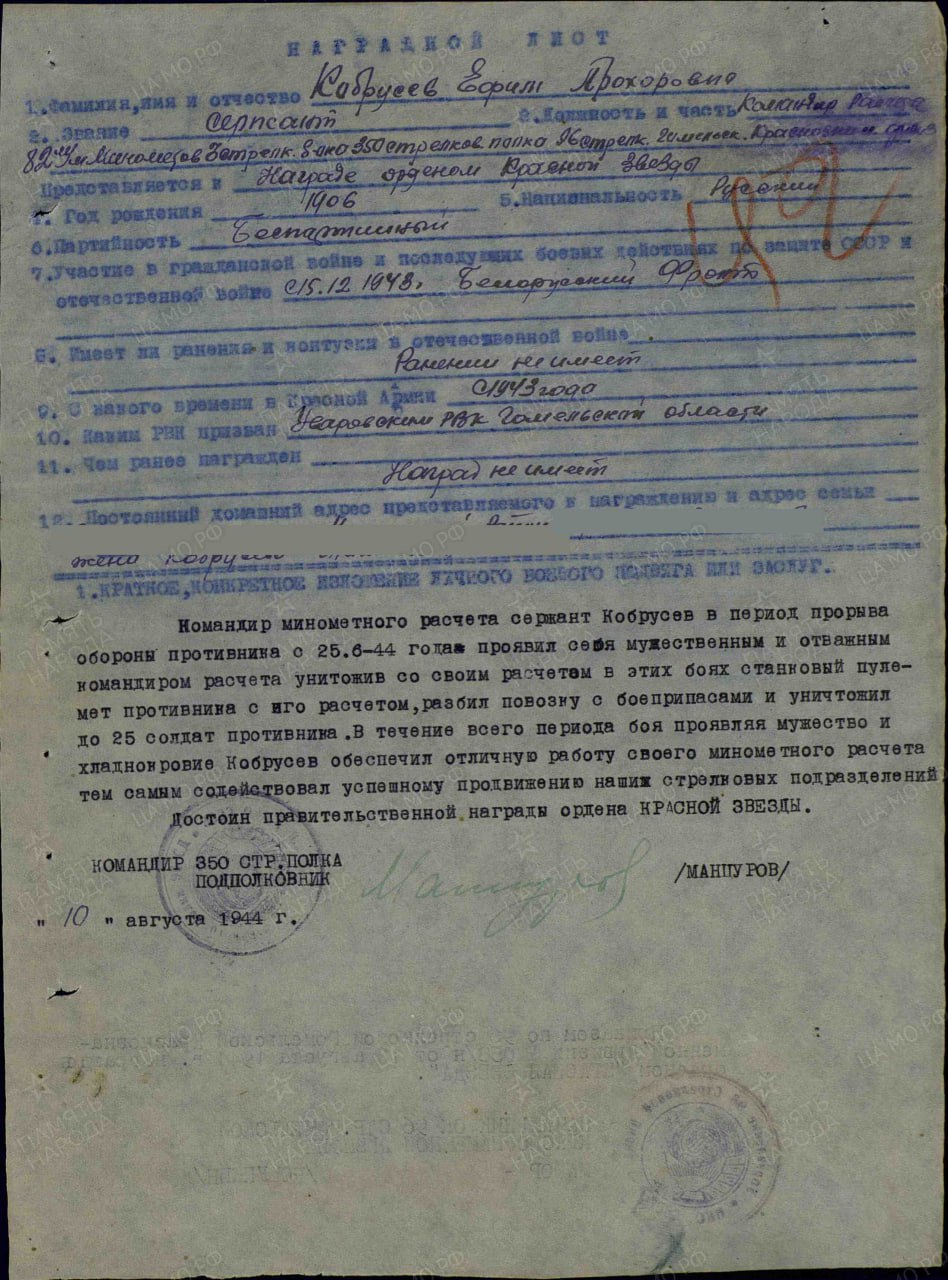 НАГРАДНОЙ ЛИСТ
1. Фамилия, имя и отчество Кобрусев Ефим Прохоровно
2. Звание сержант 3. Должность и часть Командир Расчета
82 мм Минометов 3 стрелк. б-на 350 стрелков полка 96 стрелк. Гомельск. Краснознам
Представляется к Награде орденом Красной Звезды
4. Год рождения 1906 5. Национальность Русский
6. Партийность Беспартийный
7. Участие в гражданской войне и последующих боевых действиях по защите СССР и
отечественной войне с 15.12 1943г. Белорусский Фронт
8. Имеет ли ранения и контузии в отечественной войне
Ранений не имеет
9. С какого времени в Красной Армии с 1943 года
10. Каким РВК призван РВК Гомельской области
11. Чем ранее награжден
Наград не имеет
12. Постоянный домашний адрес представляемого к награждению и адрес семьи
жена
1. КРАТКОЕ, КОНКРЕТНОЕ ИЗЛОЖЕНИЕ ЛИЧНОГО БОЕВОГО ПОДВИГА ИЛИ ЗАСЛУГ.
Командир минометного расчета сержант Кобрусев в период прорыва
обороны противника с 25.6-44 года проявил себя мужественным и отважным
командиром расчета унитожив со своим расчетом в этих боях станковый пуле-
мет противника с иго расчетом, разбил повозку с боеприпасами и уничтожил
до 25 солдат противника. В течение всего периода боя проявляя мужество и
хладнокровие Кобрусев обеспечил отличную работу своего минометного расчета
тем самым содействовал успешному продвижению наших стрелковых подразделений
Достоин правительственной награды ордена КРАСНОЙ ЗВЕЗДЫ.
КОМАНДИР 350 СТР.ПОЛКА
ПОДПОЛКОВНИК /МАНЦУРОВ/
" 10 " августа 1944 г.